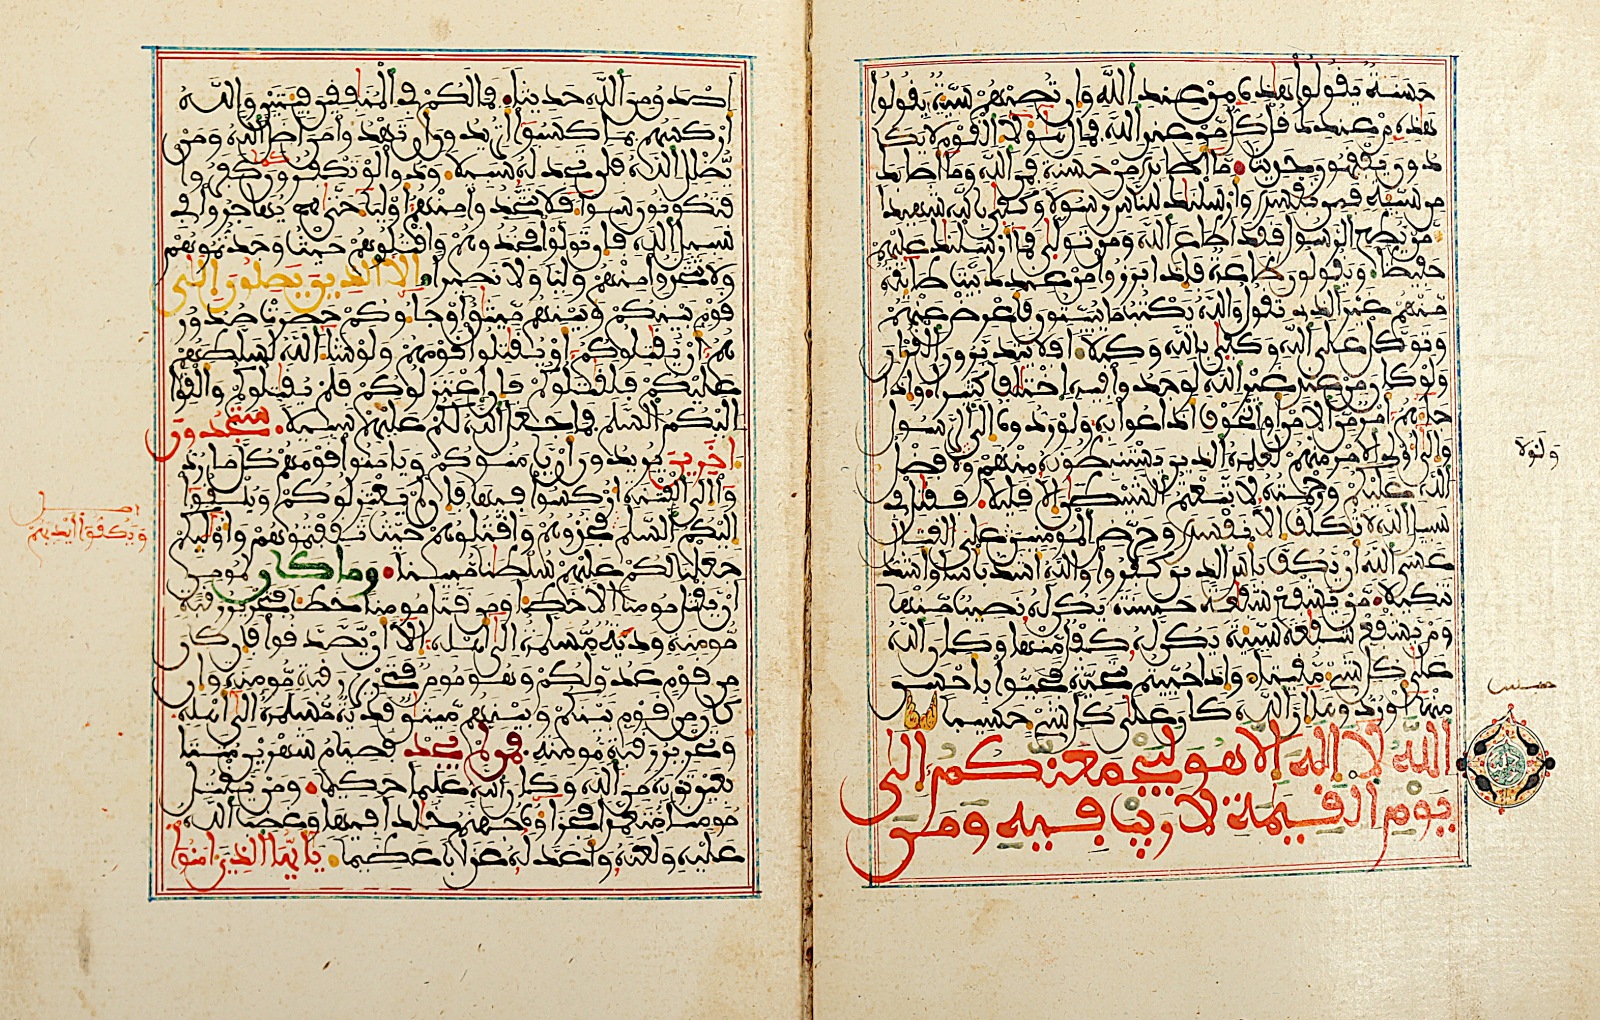 حسنة يقولوا هذه من عند الله وان تصبهم سيئة يقولوا
هذه من عندك قل كل من عند الله فمال هؤلاء القوم لا يكا
دون يفقهون حديثا ما اصابك من حسنة فمن الله وما اصابك
من سيئة فمن نفسك وارسلنك للناس رسولا وكفى بالله شهيدا
من يطع الرسول فقد اطاع الله ومن تولى فما ارسلنك عليهم
حفيظا ويقولون طاعة فاذا برزوا من عندك بيت طائفة
منهم غير الذى تقول والله يكتب ما يبيتون فاعرض عنهم
وتوكل على الله وكفى بالله وكيلا افلا يتدبرون القرءان
ولو كان من عند غير الله لوجدوا فيه اختلفا كثيرا واذا
جاءهم امر من الامن او الخوف اذاعوا به ولو ردوه الى الرسول
والى اولى الامر منهم لعلمه الذين يستنبطونه منهم ولا فضل
ولولا
الله عليكم ورحمته لاتبعتم الشيطن الا قليلا فقتل فى
سبيل الله لا تكلف الا نفسك وحرض المومنين على القتال
عسى الله ان يكف باس الذين كفروا والله اشد باسا واشد
تنكيلا من يشفع شفعة حسنة يكن له نصيب منها
ومن يشفع شفعة سيئة يكن له كفل منها وكان الله
على كل شىء مقيتا واذا حييتم بتحية فحيوا باحسن
منها او ردوها ان الله كان على كل شىء حسيبا
الله لا اله الا هو ليجمعنكم الى
يوم القيمة لا ريب فيه ومن
اصدق من الله حديثا فما لكم فى المنفقين فئتين والله
اركسهم بما كسبوا اتريدون ان تهدوا من اضل الله ومن
يضلل الله فلن تجد له سبيلا ودوا لو تكفرون كما كفروا
فتكونون سواء فلا تتخذوا منهم اولياء حتى يهاجروا فى
سبيل الله فان تولوا فخذوهم واقتلوهم حيث وجدتموهم
ولا تتخذوا منهم وليا ولا نصيرا الا الذين يصلون الى
قوم بينكم وبينهم ميثق او جاءوكم حصرت صدور
هم ان يقتلوكم او يقتلوا قومهم ولو شاء الله لسلطهم
عليكم فلقتلوكم فان اعتزلوكم فلم يقتلوكم والقوا
اليكم السلم فما جعل الله لكم عليهم سبيلا ستجدون
اخرين يريدون ان يامنوكم ويامنوا قومهم كل ما ردوا
الى الفتنة اركسوا فيها فان لم يعتزلوكم ويلقوا
اليكم السلم فخذوهم واقتلوهم حيث ثقفتموهم واولئكم
ويكفوا ايديهم
جعلنا لكم عليهم سلطنا مبينا وما كان لمومن
ان يقتل مومنا الا خطا ومن قتل مومنا خطا فتحرير رقبة
مومنة ودية مسلمة الى اهله الا ان يصدقوا فان كان
من قوم عدو لكم وهو مومن فتحرير رقبة مومنة وان
كان من قوم بينكم وبينهم ميثق فدية مسلمة الى اهله
وتحرير رقبة مومنة فمن لم يجد فصيام شهرين متتا
بعين توبة من الله وكان الله عليما حكيما ومن يقتل
مومنا متعمدا فجزاؤه جهنم خلدا فيها وغضب الله
عليه ولعنه واعد له عذابا عظيما يايها الذين امنوا